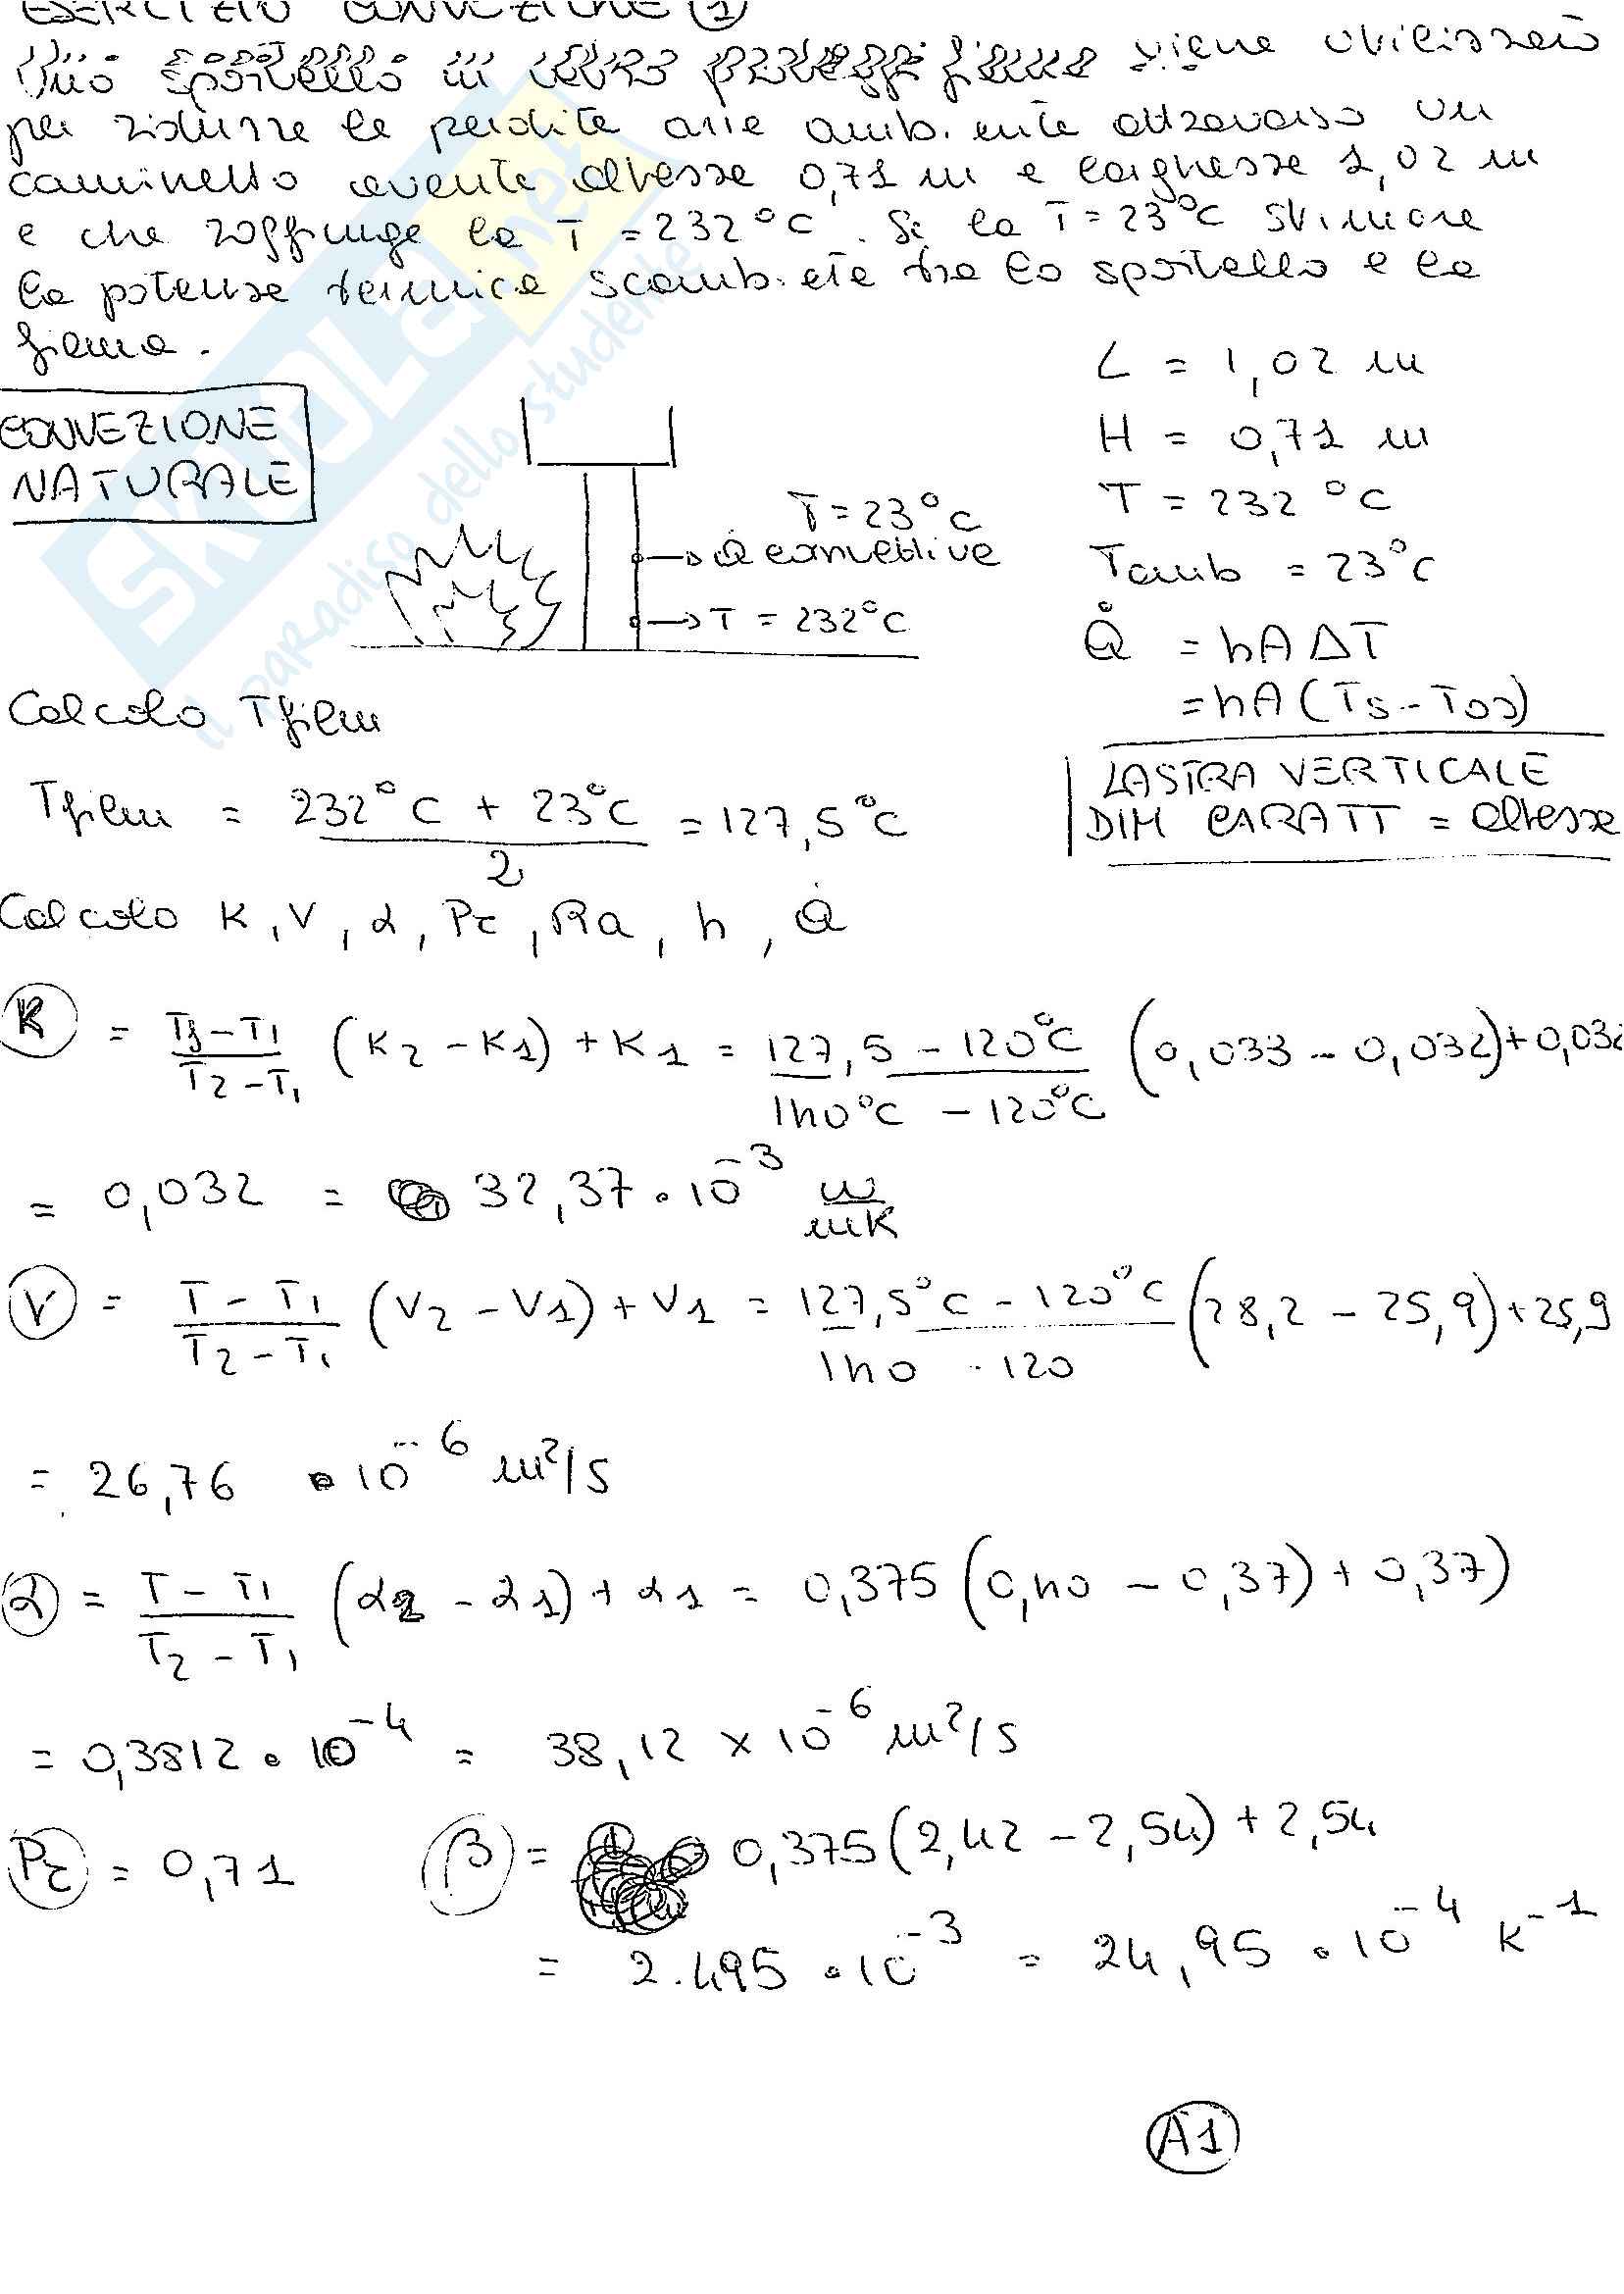 ESERCIZIO CONVEZIONE (1)
Uno sportello in vetro proteggi fiamma viene utilizzato
per ridurre le perdite aria ambiente attraverso un
caminetto avente altezza 0,71 m e larghezza 1,02 m
e che raggiunge la T = 232°C. Se la T = 23°C stimare
la potenza termica scambiata tra lo sportello e la
fiamma.
L = 1,02 m
H = 0,71 m
T = 232 °C
Tamb = 23°C
Q̇ = hA ΔT
= hA (Ts - T∞)
CONVEZIONE
NATURALE
T = 23°C
Q̇ convettiva
T = 232°C
SKUOLA.net
il paradiso dello studente
LASTRA VERTICALE
DIM CARATT = altezza
Calcolo Tfilm
Tfilm = (232°C + 23°C) / 2 = 127,5°C
Calcolo K, ν, α, Pr, Ra, h, Q̇
K = (Tf - T1) / (T2 - T1) (K2 - K1) + K1 = (127,5 - 120°C) / (140°C - 120°C) (0,033 - 0,032) + 0,032
= 0,032 = 32,37 · 10^-3 W/mK
ν = (T - T1) / (T2 - T1) (ν2 - ν1) + ν1 = (127,5°C - 120°C) / (140 - 120) (28,2 - 25,9) + 25,9
= 26,76 · 10^-6 m²/s
α = (T - T1) / (T2 - T1) (α2 - α1) + α1 = 0,375 (0,40 - 0,37) + 0,37)
= 0,3812 · 10^-4 = 38,12 × 10^-6 m²/s
Pr = 0,71
β = 0,375 (2,42 - 2,54) + 2,54
= 2.495 · 10^-3 = 24,95 · 10^-4 K^-1
A1